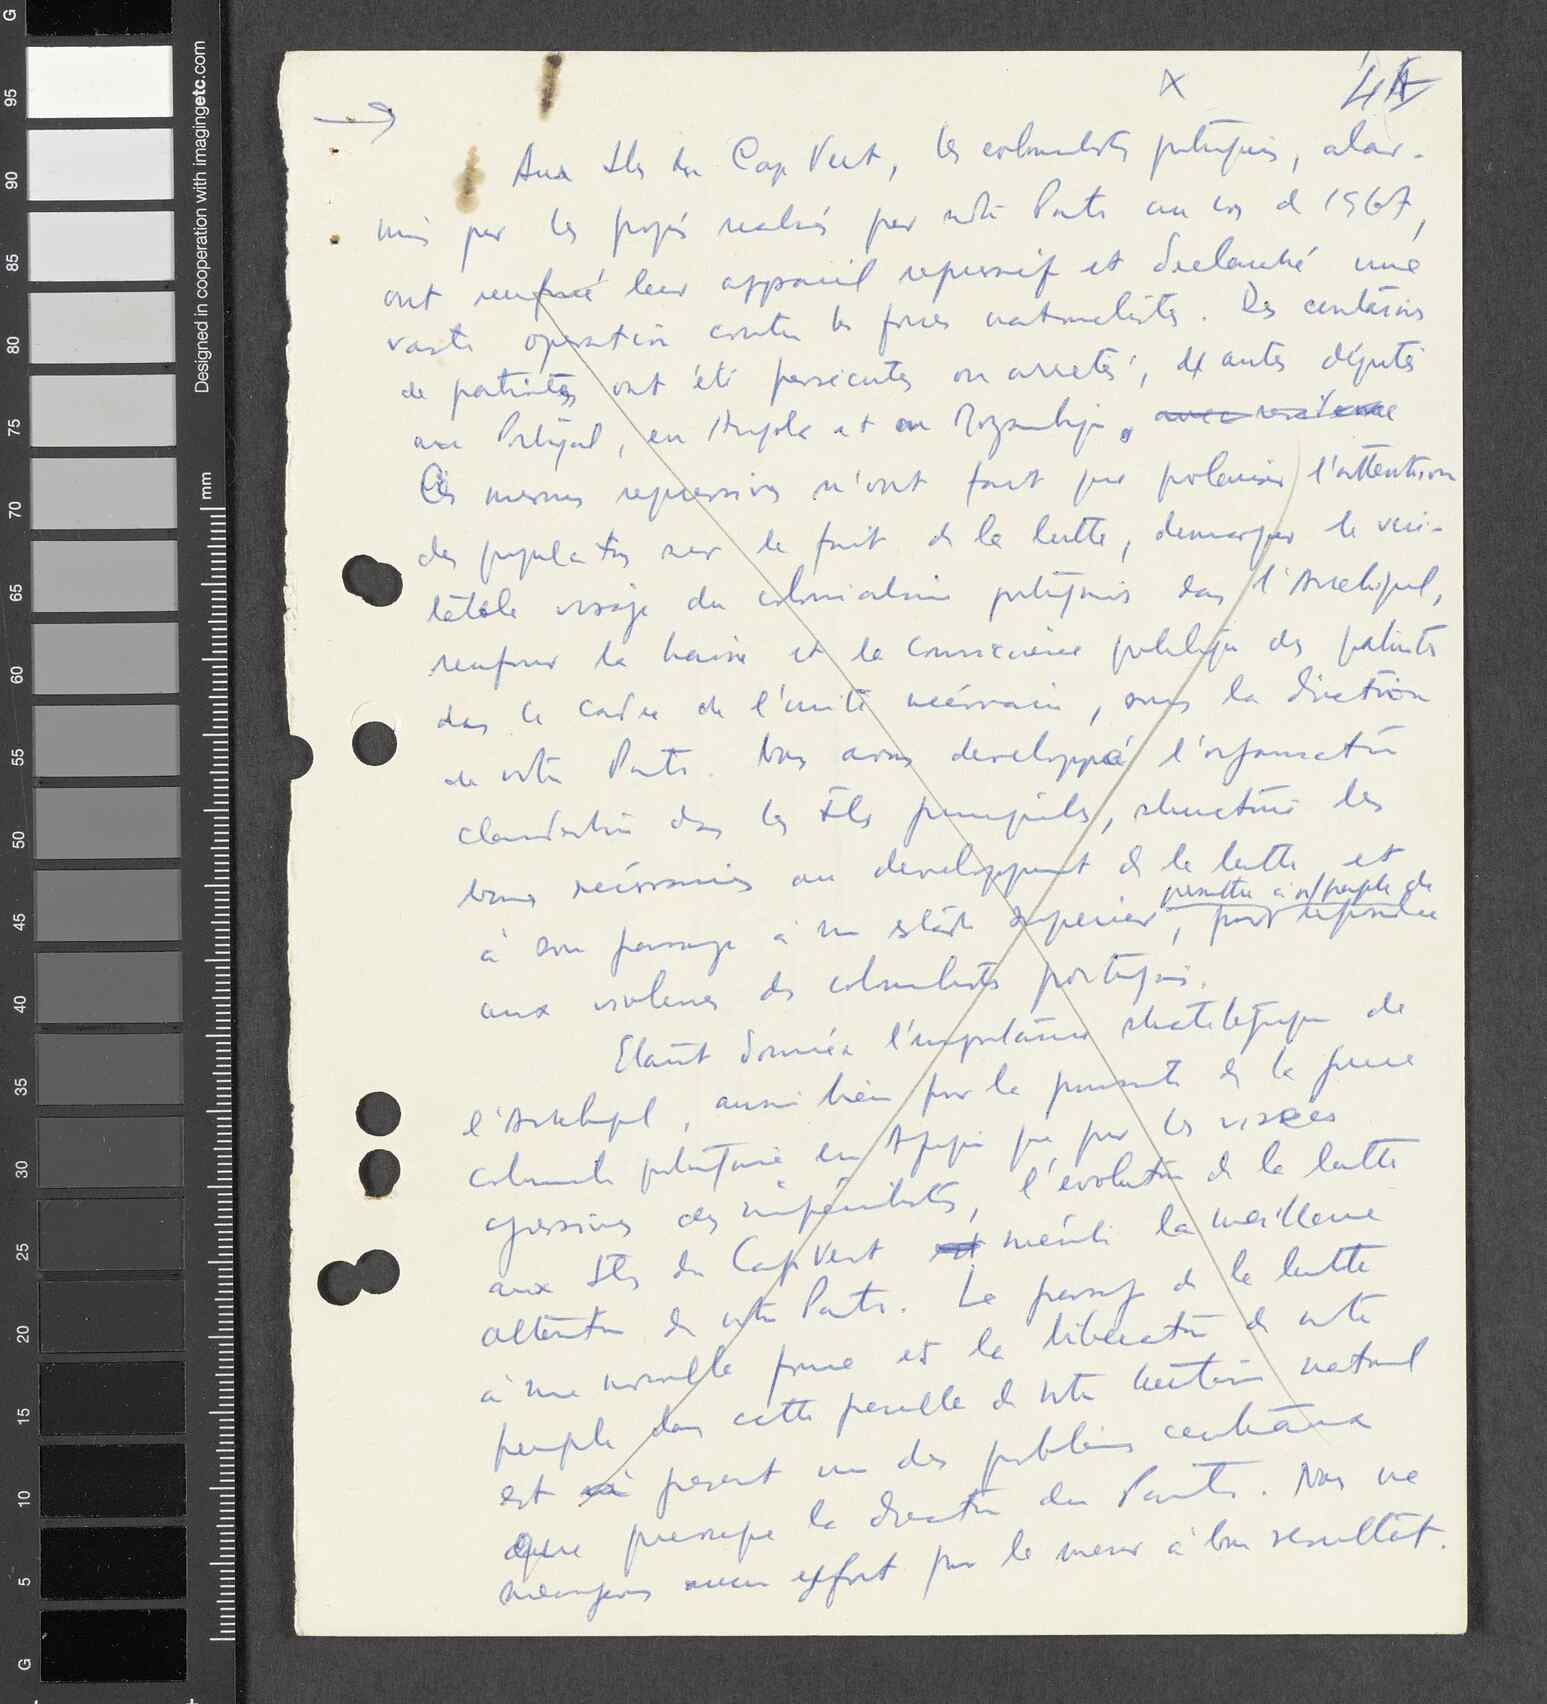 X 4
Aux Iles du Cap Vert, les colonialistes portugais, alar-
més par les progrès réalisés par notre Parti au cos de 1967,
ont renforcé leur appareil repressif et declanché une
vaste opération contre les forces nationalistes. Des centaines
de patriotes ont été persecutés ou arretés, d'autres déportés
au Portugal, en Angola et au Mozambique.
Ces mesures repressives n'ont fait que polariser l'attention
des populations sur le fait de la lutte, demasquer le veri-
table visage du colonialisme portugais dans l'Archipel,
renforcer la haine et la conscience politique des patriotes
dans le cadre de l'unité nécessaire, sous la direction
de notre Parti. Nous avons developpé l'organisation
clandestine dans les Iles principales, structuré les
bases nécessaires au developpement de la lutte et
permettre à n/ peuple de
à son passage à un stade superieur, pour repondre
aux violences des colonialistes portugais.
Etant donnée l'importance strategique de
l'Archipel, aussi bien pour la poursuite de la guerre
coloniale portugaise en Afrique que pour les visées
agressives des impérialistes, l'évolution de la lutte
aux Iles du Cap Vert mérite la meilleure
attention de notre Parti. Le passage de la lutte
à une nouvelle forme et la libération de notre
peuple dans cette parcelle de notre territoire national
est à présent un des problèmes centraux
que preoccupe la direction du Parti. Nous ne
menageons aucun effort pour le mener à bon resultat.